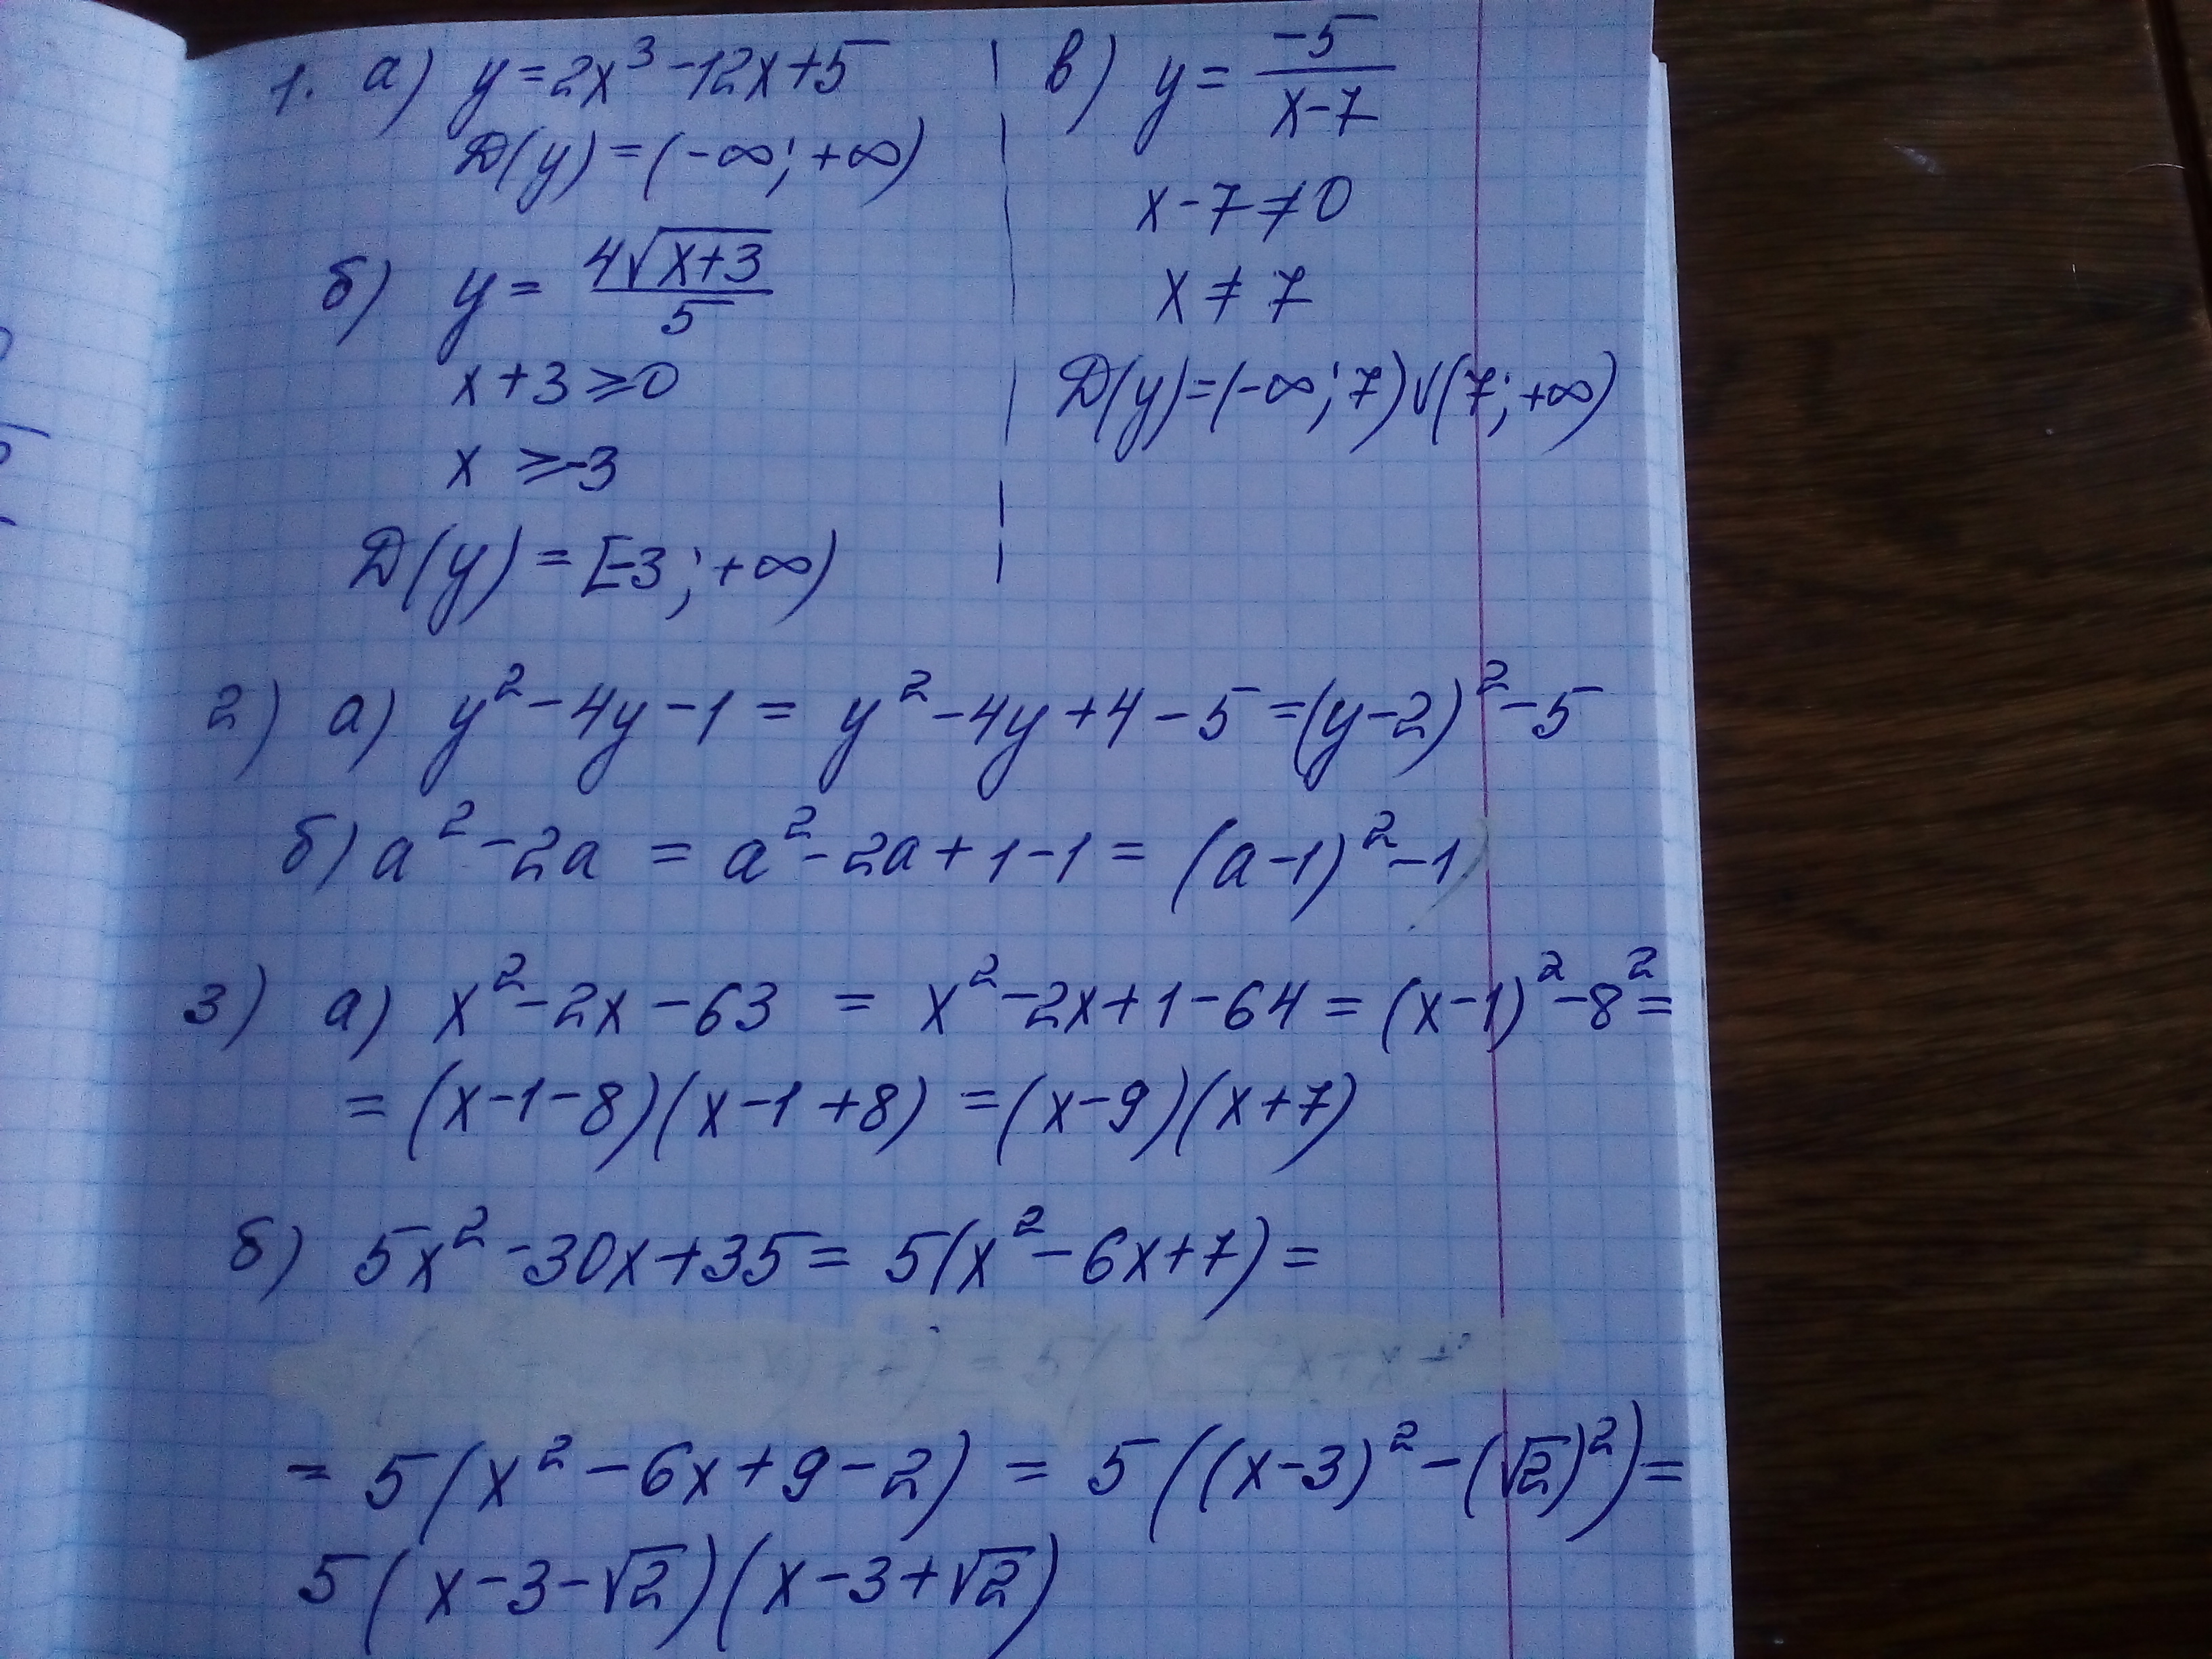 1. а) y=2x³-12x+5
D(y)=(-∞;+∞)
б) y= 4√(x+3)/5
x+3⩾0
x ⩾-3
D(y)=[-3;+∞)
в) y= -5/(x-7)
x-7≠0
x≠7
D(y)=(-∞;7)∪(7;+∞)
2) а) y²-4y-1= y²-4y+4-5=(y-2)²-5
б) a²-2a = a²-2a+1-1= (a-1)²-1
3) а) x²-2x-63 = x²-2x+1-64=(x-1)²-8²=
=(x-1-8)(x-1+8)=(x-9)(x+7)
б) 5x²-30x+35= 5(x²-6x+7)=
= 5(x²-6x+9-2) = 5((x-3)²-(√2)²)=
5(x-3-√2)(x-3+√2)